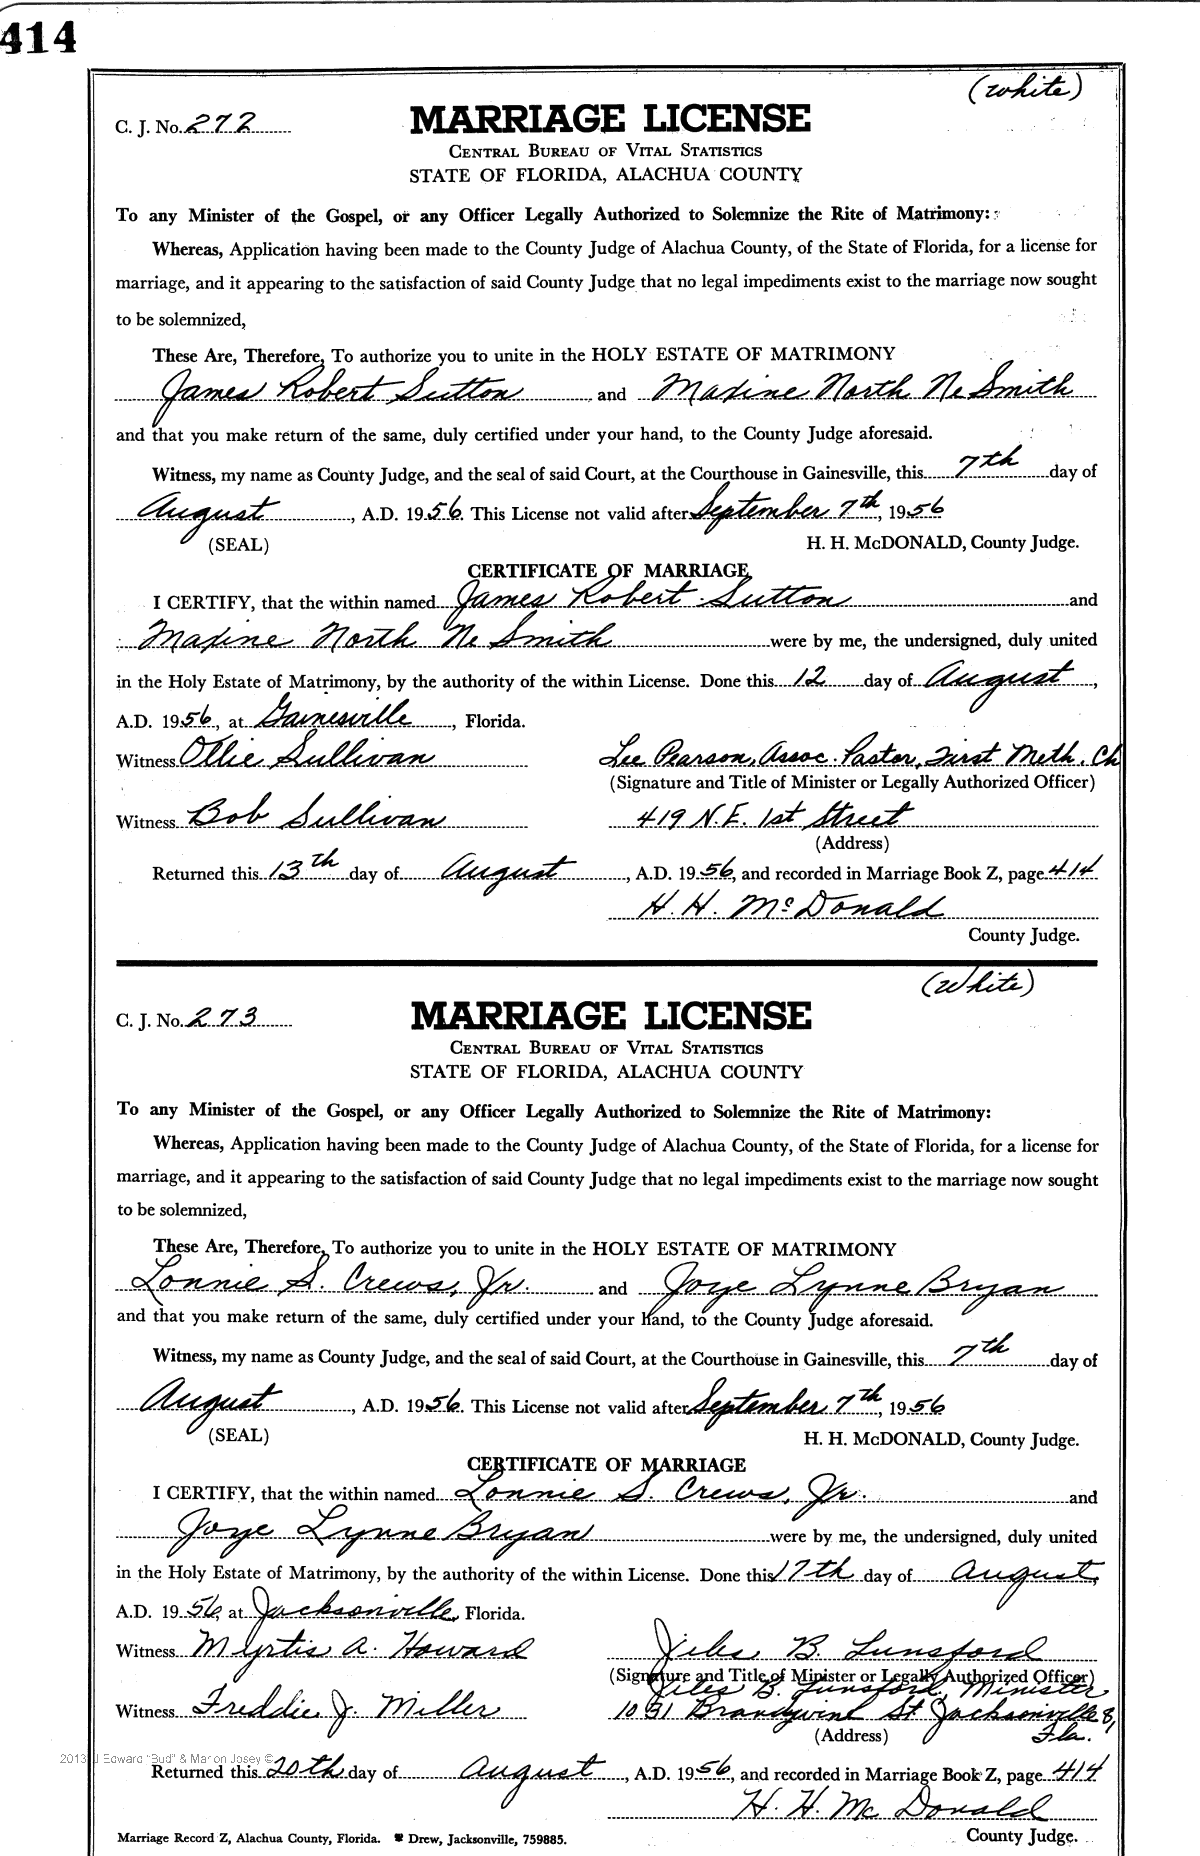 414
(White)
C. J. No. 272
MARRIAGE LICENSE
CENTRAL BUREAU OF VITAL STATISTICS
STATE OF FLORIDA, ALACHUA COUNTY
To any Minister of the Gospel, or any Officer Legally Authorized to Solemnize the Rite of Matrimony:
Whereas, Application having been made to the County Judge of Alachua County, of the State of Florida, for a license for
marriage, and it appearing to the satisfaction of said County Judge that no legal impediments exist to the marriage now sought
to be solemnized,
These Are, Therefore, To authorize you to unite in the HOLY ESTATE OF MATRIMONY
James Robert Sutton and Maxine North NeSmith
and that you make return of the same, duly certified under your hand, to the County Judge aforesaid.
Witness, my name as County Judge, and the seal of said Court, at the Courthouse in Gainesville, this 7th day of
August, A.D. 1956. This License not valid after September 7th, 1956
(SEAL) H. H. McDONALD, County Judge.
CERTIFICATE OF MARRIAGE
I CERTIFY, that the within named James Robert Sutton and
Maxine North NeSmith were by me, the undersigned, duly united
in the Holy Estate of Matrimony, by the authority of the within License. Done this 12 day of August,
A.D. 1956, at Gainesville, Florida.
Witness Ollie Sullivan Lee Pearson, Assoc. Pastor, First Meth. Ch
(Signature and Title of Minister or Legally Authorized Officer)
Witness Bob Sullivan 419 N.E. 1st Street
(Address)
Returned this 13th day of August, A.D. 1956, and recorded in Marriage Book Z, page 414
H. H. McDonald
County Judge.
(White)
C. J. No. 273
MARRIAGE LICENSE
CENTRAL BUREAU OF VITAL STATISTICS
STATE OF FLORIDA, ALACHUA COUNTY
To any Minister of the Gospel, or any Officer Legally Authorized to Solemnize the Rite of Matrimony:
Whereas, Application having been made to the County Judge of Alachua County, of the State of Florida, for a license for
marriage, and it appearing to the satisfaction of said County Judge that no legal impediments exist to the marriage now sought
to be solemnized,
These Are, Therefore, To authorize you to unite in the HOLY ESTATE OF MATRIMONY
Lonnie S. Crews, Jr. and Joye Lynne Bryan
and that you make return of the same, duly certified under your hand, to the County Judge aforesaid.
Witness, my name as County Judge, and the seal of said Court, at the Courthouse in Gainesville, this 7th day of
August, A.D. 1956. This License not valid after September 7th, 1956
(SEAL) H. H. McDONALD, County Judge.
CERTIFICATE OF MARRIAGE
I CERTIFY, that the within named Lonnie S. Crews, Jr. and
Joye Lynne Bryan were by me, the undersigned, duly united
in the Holy Estate of Matrimony, by the authority of the within License. Done this 17th day of August,
A.D. 1956, at Jacksonville, Florida.
Witness Myrtis A. Howard Jiles B. Lunsford
(Signature and Title of Minister or Legally Authorized Officer)
Jiles B. Lunsford, Minister
Witness Freddie J. Miller 1031 Brandywine St Jacksonville 8,
(Address) Fla.
2013 J Edward "Bud" & Marion Josey ©
Returned this 20th day of August, A.D. 1956, and recorded in Marriage Book Z, page 414
H. H. McDonald
Marriage Record Z, Alachua County, Florida. Drew, Jacksonville, 759885. County Judge.